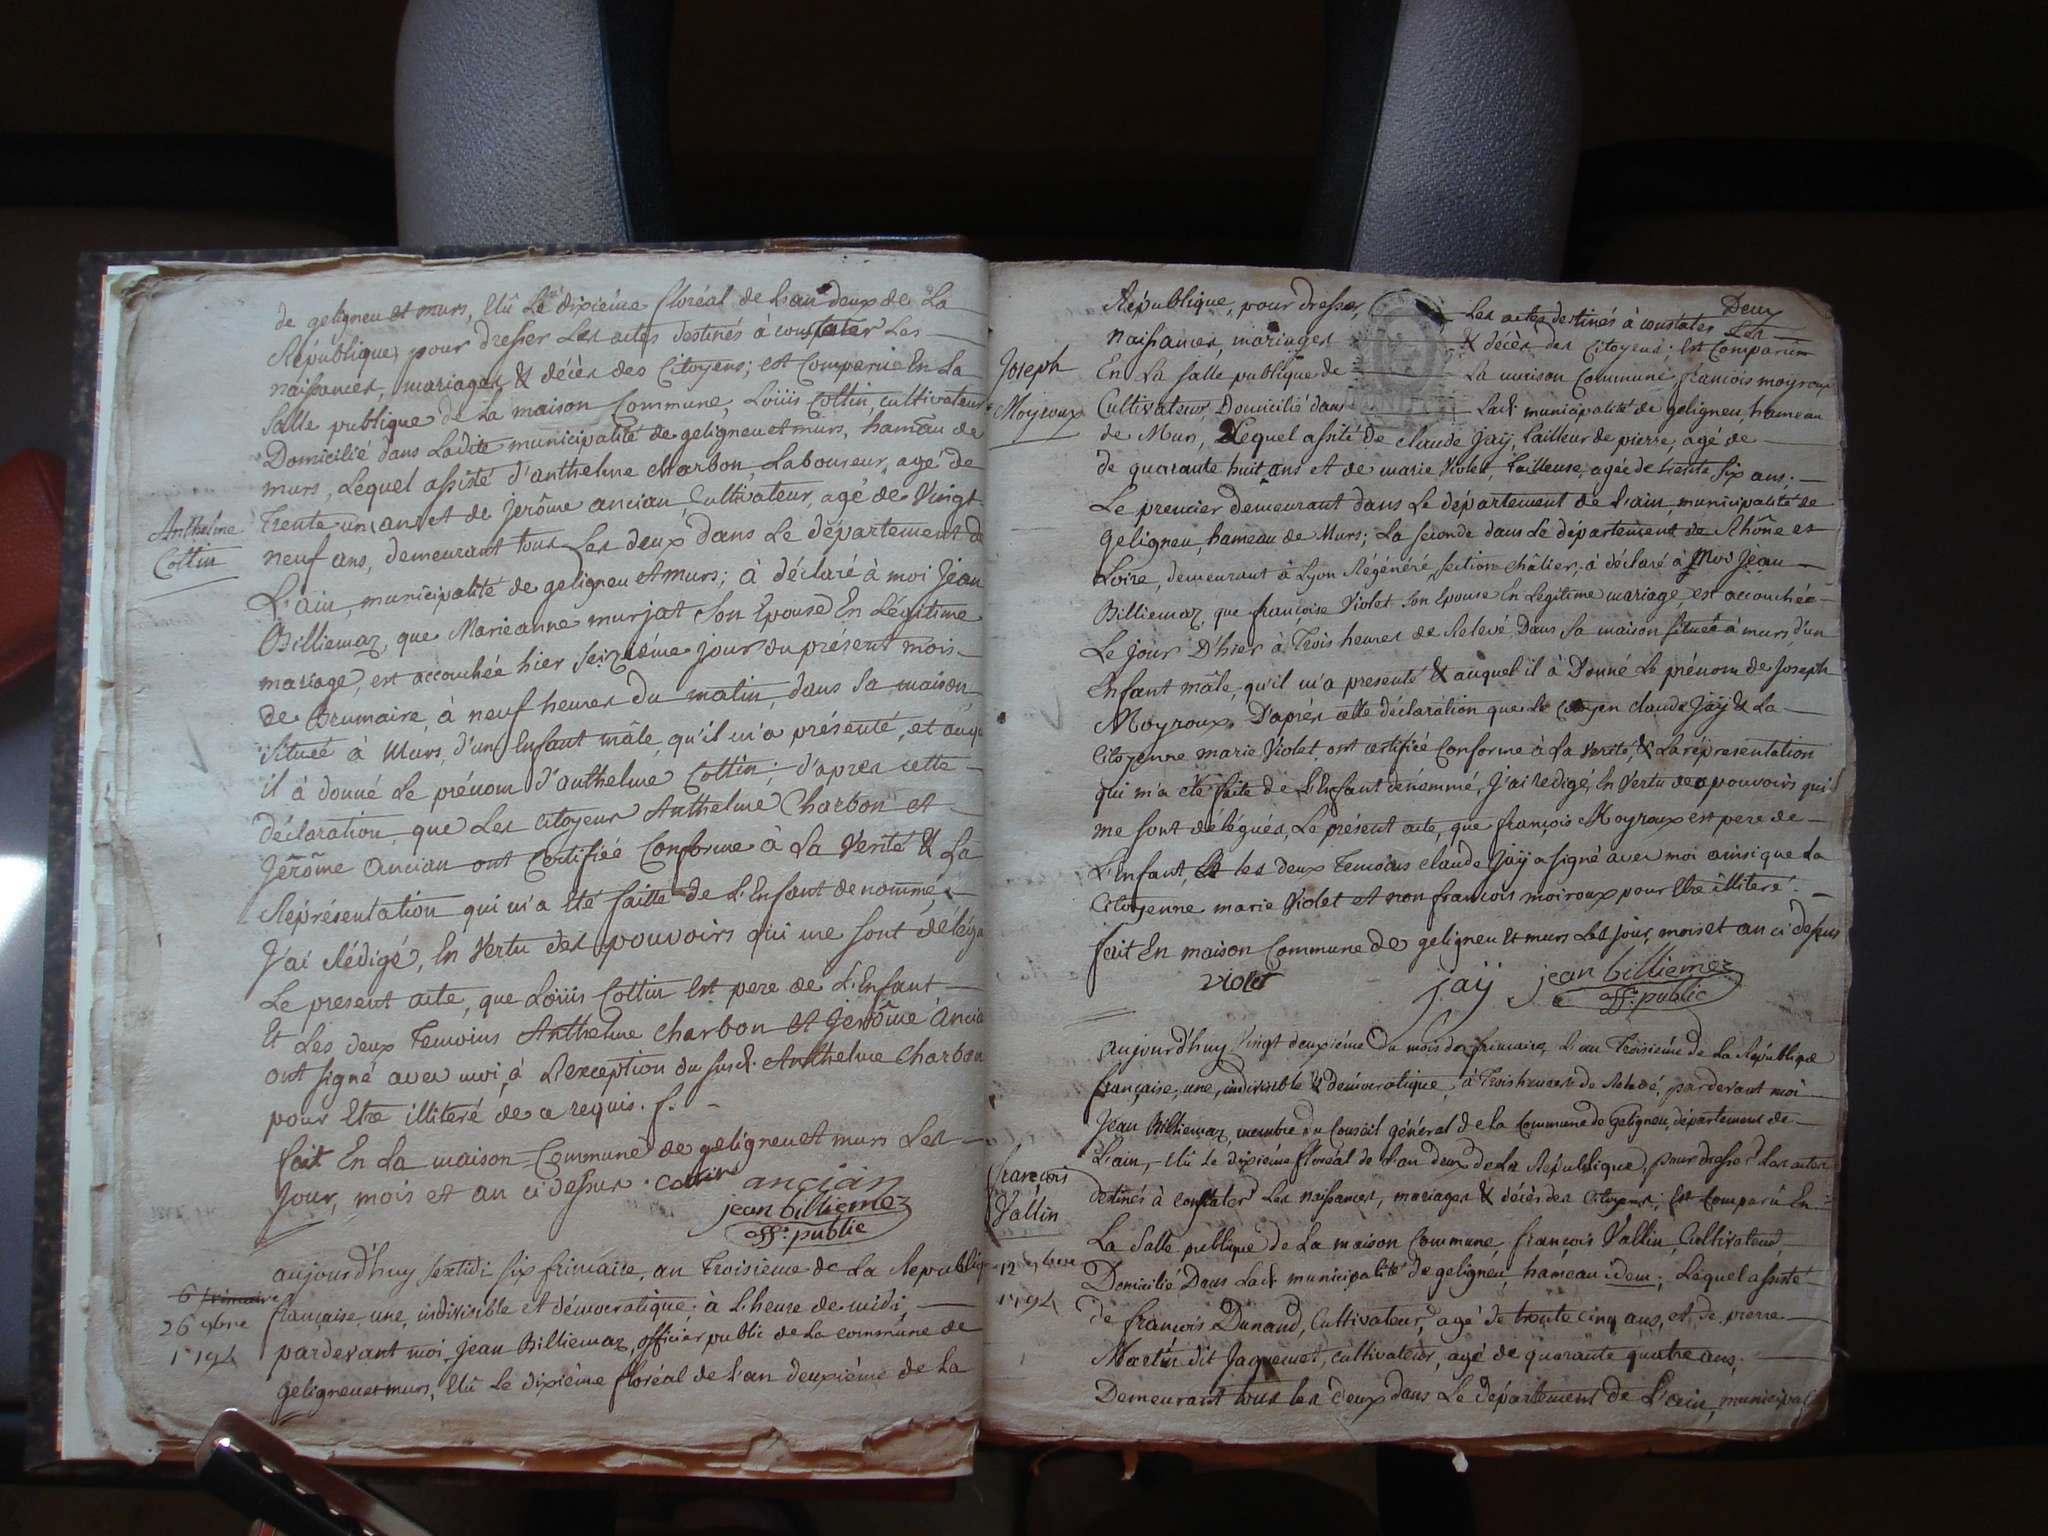 de geligneu et murs, Elû Le dixiéme floréal de L'an deux de La
République, pour dresser Les actes destinés à constater Les
naissances, mariages & décès des Citoyens; est Comparu En La
Salle publique de La maison Commune, Louis Cottin, cultivateur
Domicilié dans Ladite municipalité de geligneu et murs, hameau de
murs, Lequel assisté d'anthelme charbon Laboureur, agé de
Anthelme
Cottin
Trente un ans et de jerôme ancian, Cultivateur, agé de Vingt
neuf ans, demeurant tous Les deux dans Le département de
L'ain, municipalité de geligneu et murs; à déclaré à moi Jean
Billiemaz, que Marieanne murjat Son Epouse En Légitime
mariage, est accouchée hier Seiziéme jour du présent mois
de Brumaire, à neuf heures du matin, dans Sa maison
Située à Murs, d'un Enfant mâle, qu'il m'a présenté, et auquel
il à donné Le prénom d'anthelme Cottin; d'aprés cette
déclaration, que Les citoyens Anthelme Charbon et
Jerôme Ancian ont Certifiée Conforme à La Verité & La
Représentation qui m'a Eté faitte de L'Enfant denommé,
J'ai Rédigé, En Vertu des pouvoirs qui me sont délégu
Le present acte, que Louis Cottin Est pere de L'Enfant
Et Les deux Temoins Anthelme charbon et Jerôme Ancia
ont signé avec moi, à L'exception du susd. Anthelme Charbon
pour Etre illiteré de ce requis. f.
fait En La maison Commune de geligneu et murs Les
Jour, mois et an ci dessus. Cottin ancian
jean billiemaz
off. public
aujourd'huy sextidi six frimaire, an Troisieme de La Republiq
6 frimaire
26 9bre
1794
française, une, indivisible et démocratique; à L'heure de midi,
pardevant moi Jean Billiemaz, officier public de La commune de
geligneu et murs, Elû Le dixiéme floréal de L'an deuxiéme de La
Deux
République, pour dresser Les actes destinés à constater Les
naissances, mariages & décès des Citoyens; Est Comparu
Joseph
Moyroux
En La Salle publique de La maison Commune, françois moyroux
Cultivateur, Domicilié dans Lad. municipalité de geligneu, hameau
de Murs, Lequel assité de claude Jaÿ, tailleur de pierre, agé de
de quarante huit ans et de marie Violet, Tailleuse, agée de trente six ans;
Le premier demeurant dans Le département de L'ain, municipalité de
Geligneu, hameau de Murs; La seconde dans Le département de Rhône et
Loire, demeurant à Lyon Régénéré section châlier, à déclaré à Moi Jean
Billiemaz, que françoise Violet son Epouse En Légitime mariage, est accouchée
Le jour D'hier à Trois heures de Relevé, Dans Sa maison située à murs, d'un
Enfant mâle, qu'il m'a presenté & auquel il à Donné Le prénom de Joseph
Moyroux. D'aprés cette déclaration que Le Citoyen claude Jaÿ & La
Citoyenne marie Violet ont certifiée Conforme à La Verité, & La répresentation
qui m'a été faite de L'Enfant dénommé, J'ai redigé, En Vertu des pouvoirs qui
me sont délégués, Le présent acte, que françois Moyroux est pere de
L'Enfant, les deux Temoins claude Jaÿ a signé avec moi ainsi que La
Citoyenne marie Violet et non françois moiroux pour Etre illiteré.
fait En maison Commune de geligneu et murs Les jour, mois et an ci dessus
violet jaÿ jean billiemaz
off. public
aujourd'huy Vingt deuxiéme du mois de frimaire, L'an Troisiéme de La République
française, une, indivisible & démocratique, à Trois heures de Relevé, pardevant moi
Jean Billiemaz, membre du Conseil général de la Commune de Geligneu, département de
L'ain, Elû Le dixiéme floréal de L'an deux de La République, pour dresser Les actes
françois
Vallin
destinés à constater Les naissances, mariages & décès des Citoyens; Est Comparu En
La Salle publique de La maison Commune, françois Vallin, Cultivateur,
12 Xbre
1794
Domicilié Dans Lad. municipalité de geligneu, hameau idem; Lequel assisté
de françois Dunand, Cultivateur, agé de trente cinq ans, et de pierre
Martin dit Jaquemet, cultivateur, agé de quarante quatre ans,
Demeurant tous les deux dans Le département de L'ain, municipal